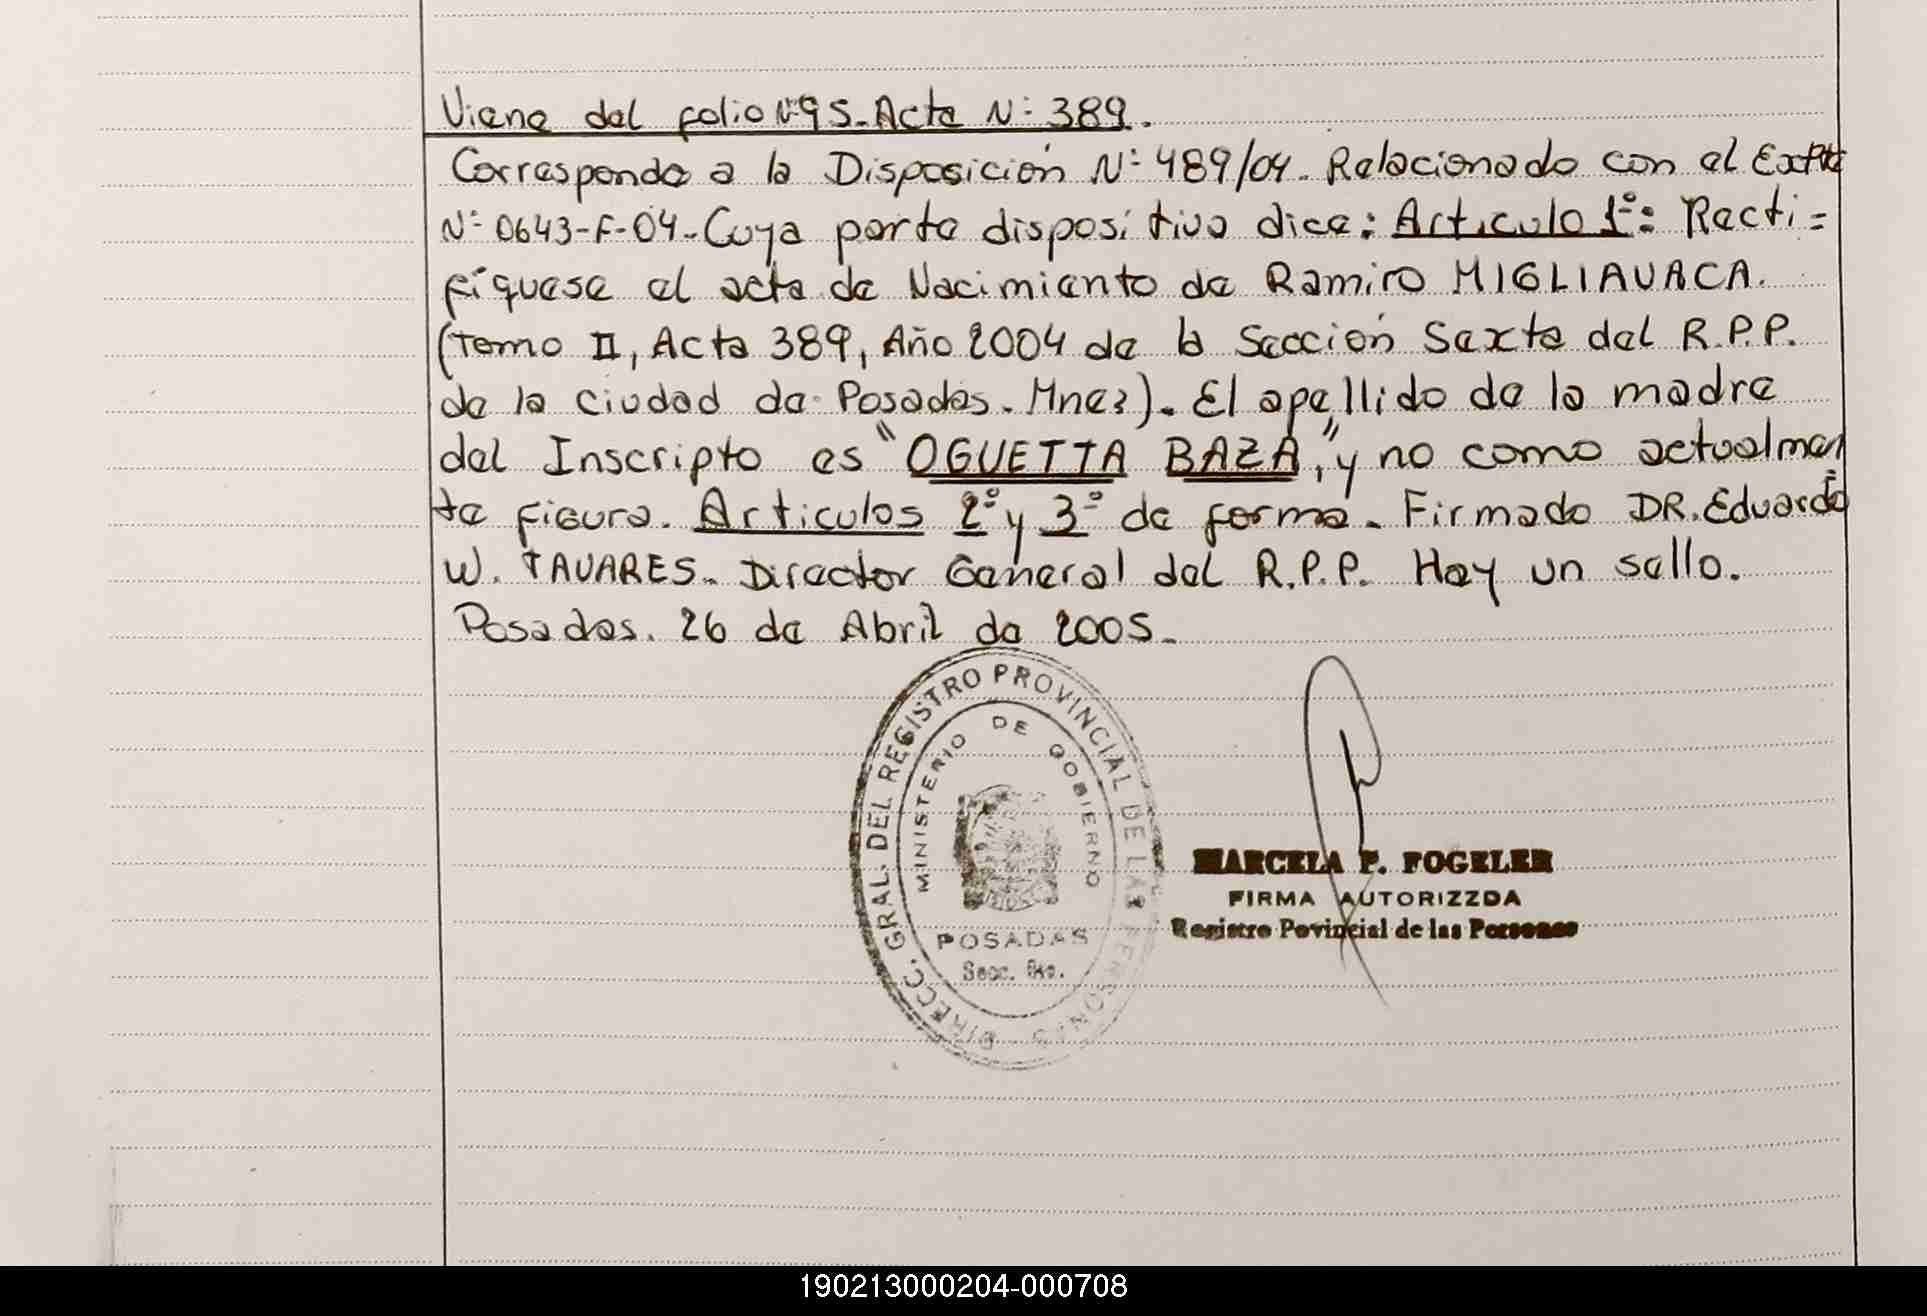 Viene del folio Nº 95. Acta Nº 389.
Corresponde a la Disposición Nº 489/04. Relacionado con el Expte
Nº 0643-F-04. Cuya parte dispositiva dice: Articulo 1º: Recti=
fíquese el acta de Nacimiento de Ramiro MIGLIAVACA.
(Tomo II, Acta 389, Año 2004 de la Sección Sexta del R.P.P.
de la Ciudad de Posadas. Mnes). El apellido de la madre
del Inscripto es "OGUETTA BAZA", y no como actualmen
te figura. Articulos 2º y 3º de forma. Firmado DR. Eduardo
W. TAVARES. Director General del R.P.P. Hay un sello.
Posadas. 26 de Abril de 2005.
DIRECC. GRAL. DEL REGISTRO PROVINCIAL DE LAS PERSONAS
MINISTERIO DE GOBIERNO
POSADAS
Secc. 6ta.
MARCELA F. FOGELER
FIRMA AUTORIZZDA
Registro Povincial de las Personas
190213000204-000708